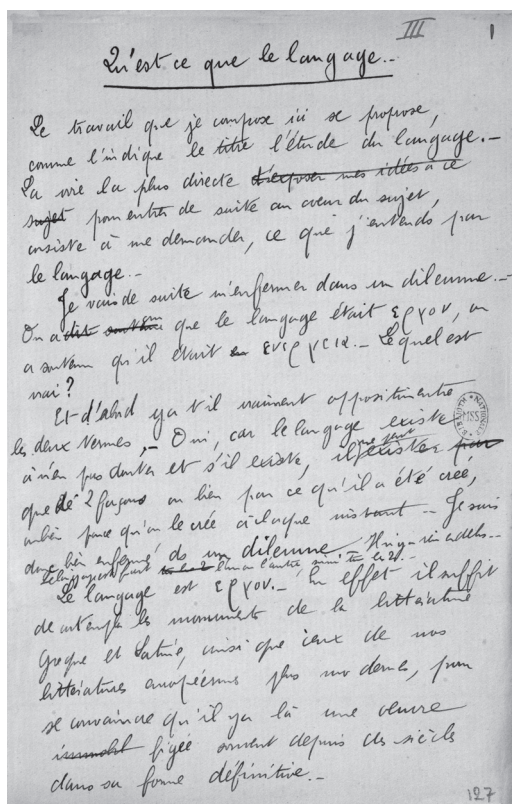 III 1
Qu'est ce que le langage.-
Le travail que je compose ici se propose,
comme l'indique le titre l'étude du langage.-
La voie la plus directe d'exposer mes idées à ce
sujet pour entrer de suite au coeur du sujet,
consiste à me demander, ce que j'entends par
le langage.-
Je vais de suite m'enfermer dans un dilemme.-
On a dit soutenu que le langage était εργον, on
a soutenu qu'il était ενεργεια.- Lequel est
vrai?
Et d'abord y a t'il vraiment opposition entre
les deux termes,- Oui car le langage existe
à n'en pas douter et s'il existe, il existe par
que de 2 façons ou bien par ce qu'il a été créé,
ou bien parce qu'on le crée à chaque instant.- Je suis
donc bien enfermé ds un dilemme
Le langage est εργον.- En effet il suffit
de les monuments de la littérature
Grecque et Latine, ainsi que ceux de nos
littératures européennes plus modernes, pour
se convaincre qu'il y a là une oeuvre
figée souvent depuis des siècles
dans sa forme définitive.-
MSS
127